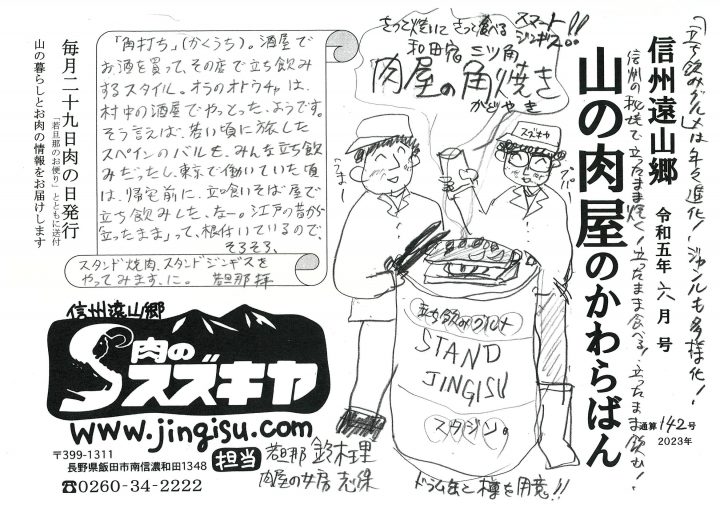 「立ち飲みグルメは年々進化！ジャンルも多様化！
信州の秘境で立ったまま焼く！立ったまま食べる！立ったまま飲む！
信州遠山郷
山の肉屋のかわらばん
令和五年 六月号
通算142号
2023年
さっと焼いてさっと食べる
スマート
ジンギス!!
和田宿 三ツ角
肉屋の角焼き
かどやき
「角打ち」(かくうち)。酒屋で
お酒を買って、その店で立ち飲み
するスタイル。オラのオトウチャは、
村中の酒屋でやっとった、ようです。
そう言えば、若い頃に旅した
スペインのバルも、みんな立ち飲
みだったし、東京で働いていた頃
は、帰宅前に、立喰いそば屋で
立ち飲みした、なー。江戸の昔から
"立ったまま"って、根付いているので、
そろそろ、
スタンド焼肉、スタンドジンギスを
やってみます、に。 若旦那 拝
毎月二十九日肉の日発行
「若旦那のお便り」とともに送付
山の暮らしとお肉の情報をお届けします
スズキヤ
うまー
立ち飲みグルメ
STAND
JINGISU
スタジン。
ドラム缶と樽を用意!!
信州遠山郷
肉の
スズキヤ
www.jingisu.com
〒399-1311
長野県飯田市南信濃和田1348
☎0260-34-2222
担当
若旦那 鈴木理
肉屋の女房 志保